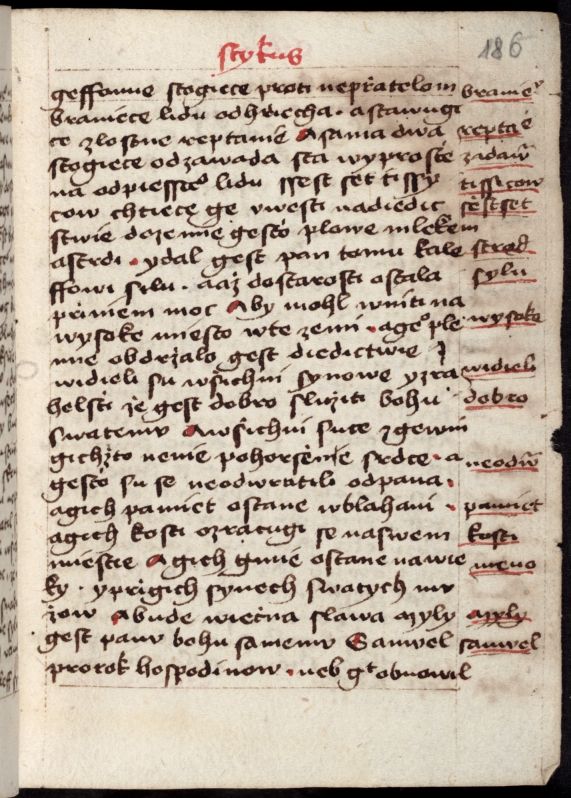 stykus
186
geffonne stogiece proti neprżatelom
braniece lidu odhrziecha . astawugi
ce zlostne reptanie Asama dwa
stogiece odzawada sta wyprostie
na odpiessceo lidu ssest set tissy
cow chtiece ge vwesti nadiedic
stwie dozemie gesto plowe mlekem
astrdi . ydal gest pan tomu kale
ffowi silu . aaż dostarosti ostala
prżiniem moc Aby mohl wniti na
wysoke miesto wte zemi . ageo ple
mie obdrżalo gest diedictwie
widieli su wsichni synowe yzra
helsti że gest dobro slużiti bohu
swatemu Awsichni suce
gichżto nenie pohorsenie srdce . a
gesto su se neodwratili odpana .
agich pamiet ostane wblahani .
agich kosti ozracugi se naswem
miestie Agich gmie ostane nawie
ky . yprżigich synech swatych mu
żow Abude wieczna slawa Myly
gest panu bohu samemu Samuel
prorok hospodinow . neb gt obnowil
branie
reptae
zidaw
tissicow
sest set
stred
sylu
wysoke
widieli
dobro
neodw
pamiet
kosti
meno
myly
samuel